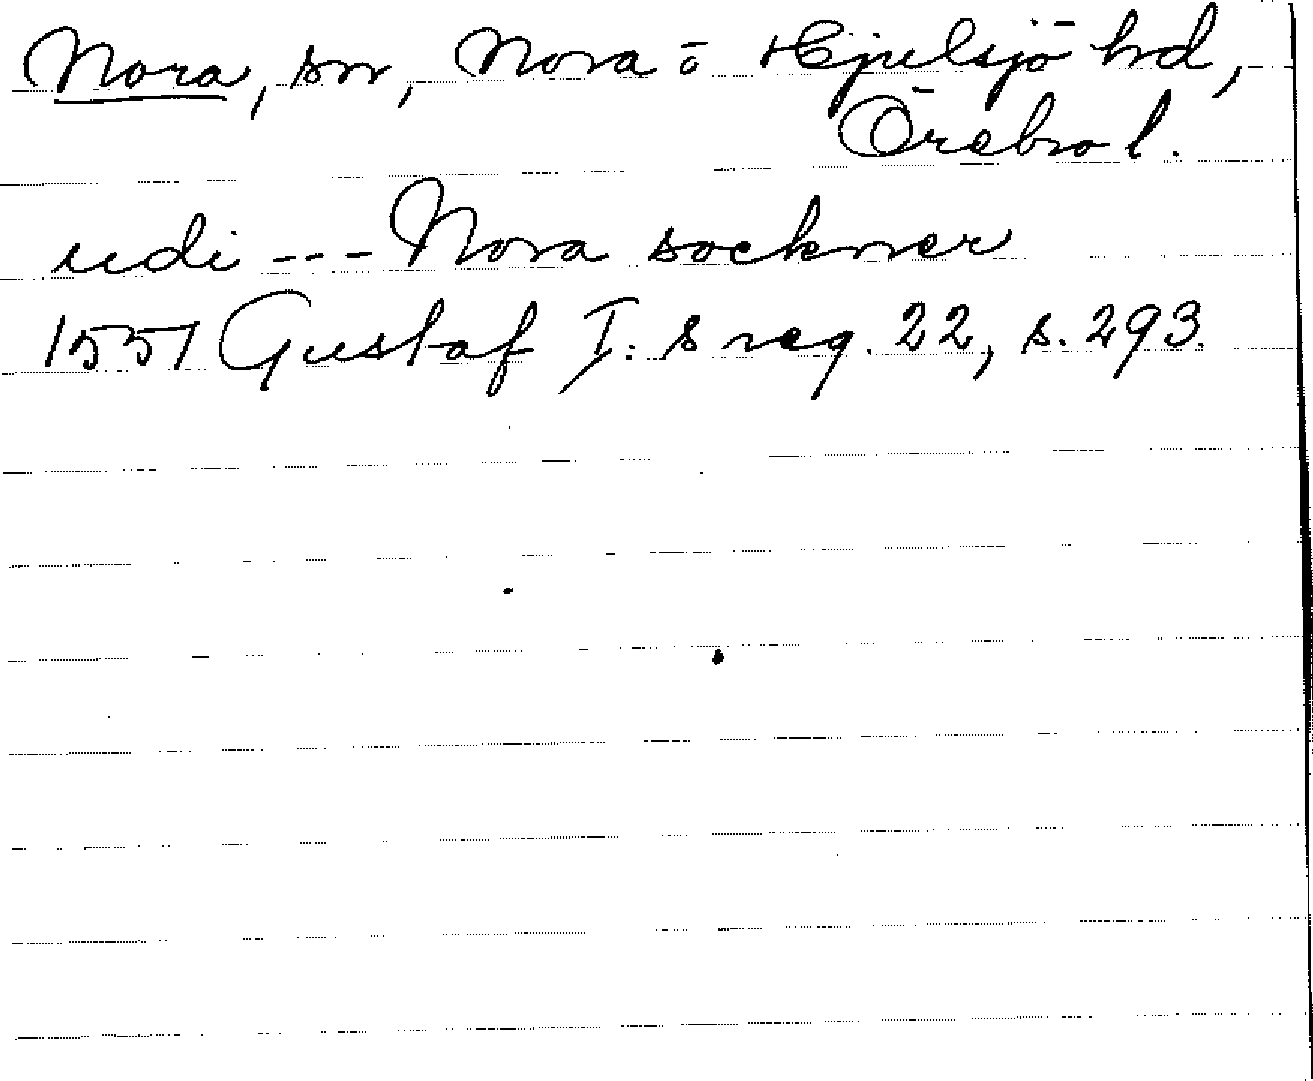 Nora, sn, Nora o Hjulsjö hd,
Örebro l.
udi --- Nora sockner
1551 Gustaf I:s reg. 22, s. 293.